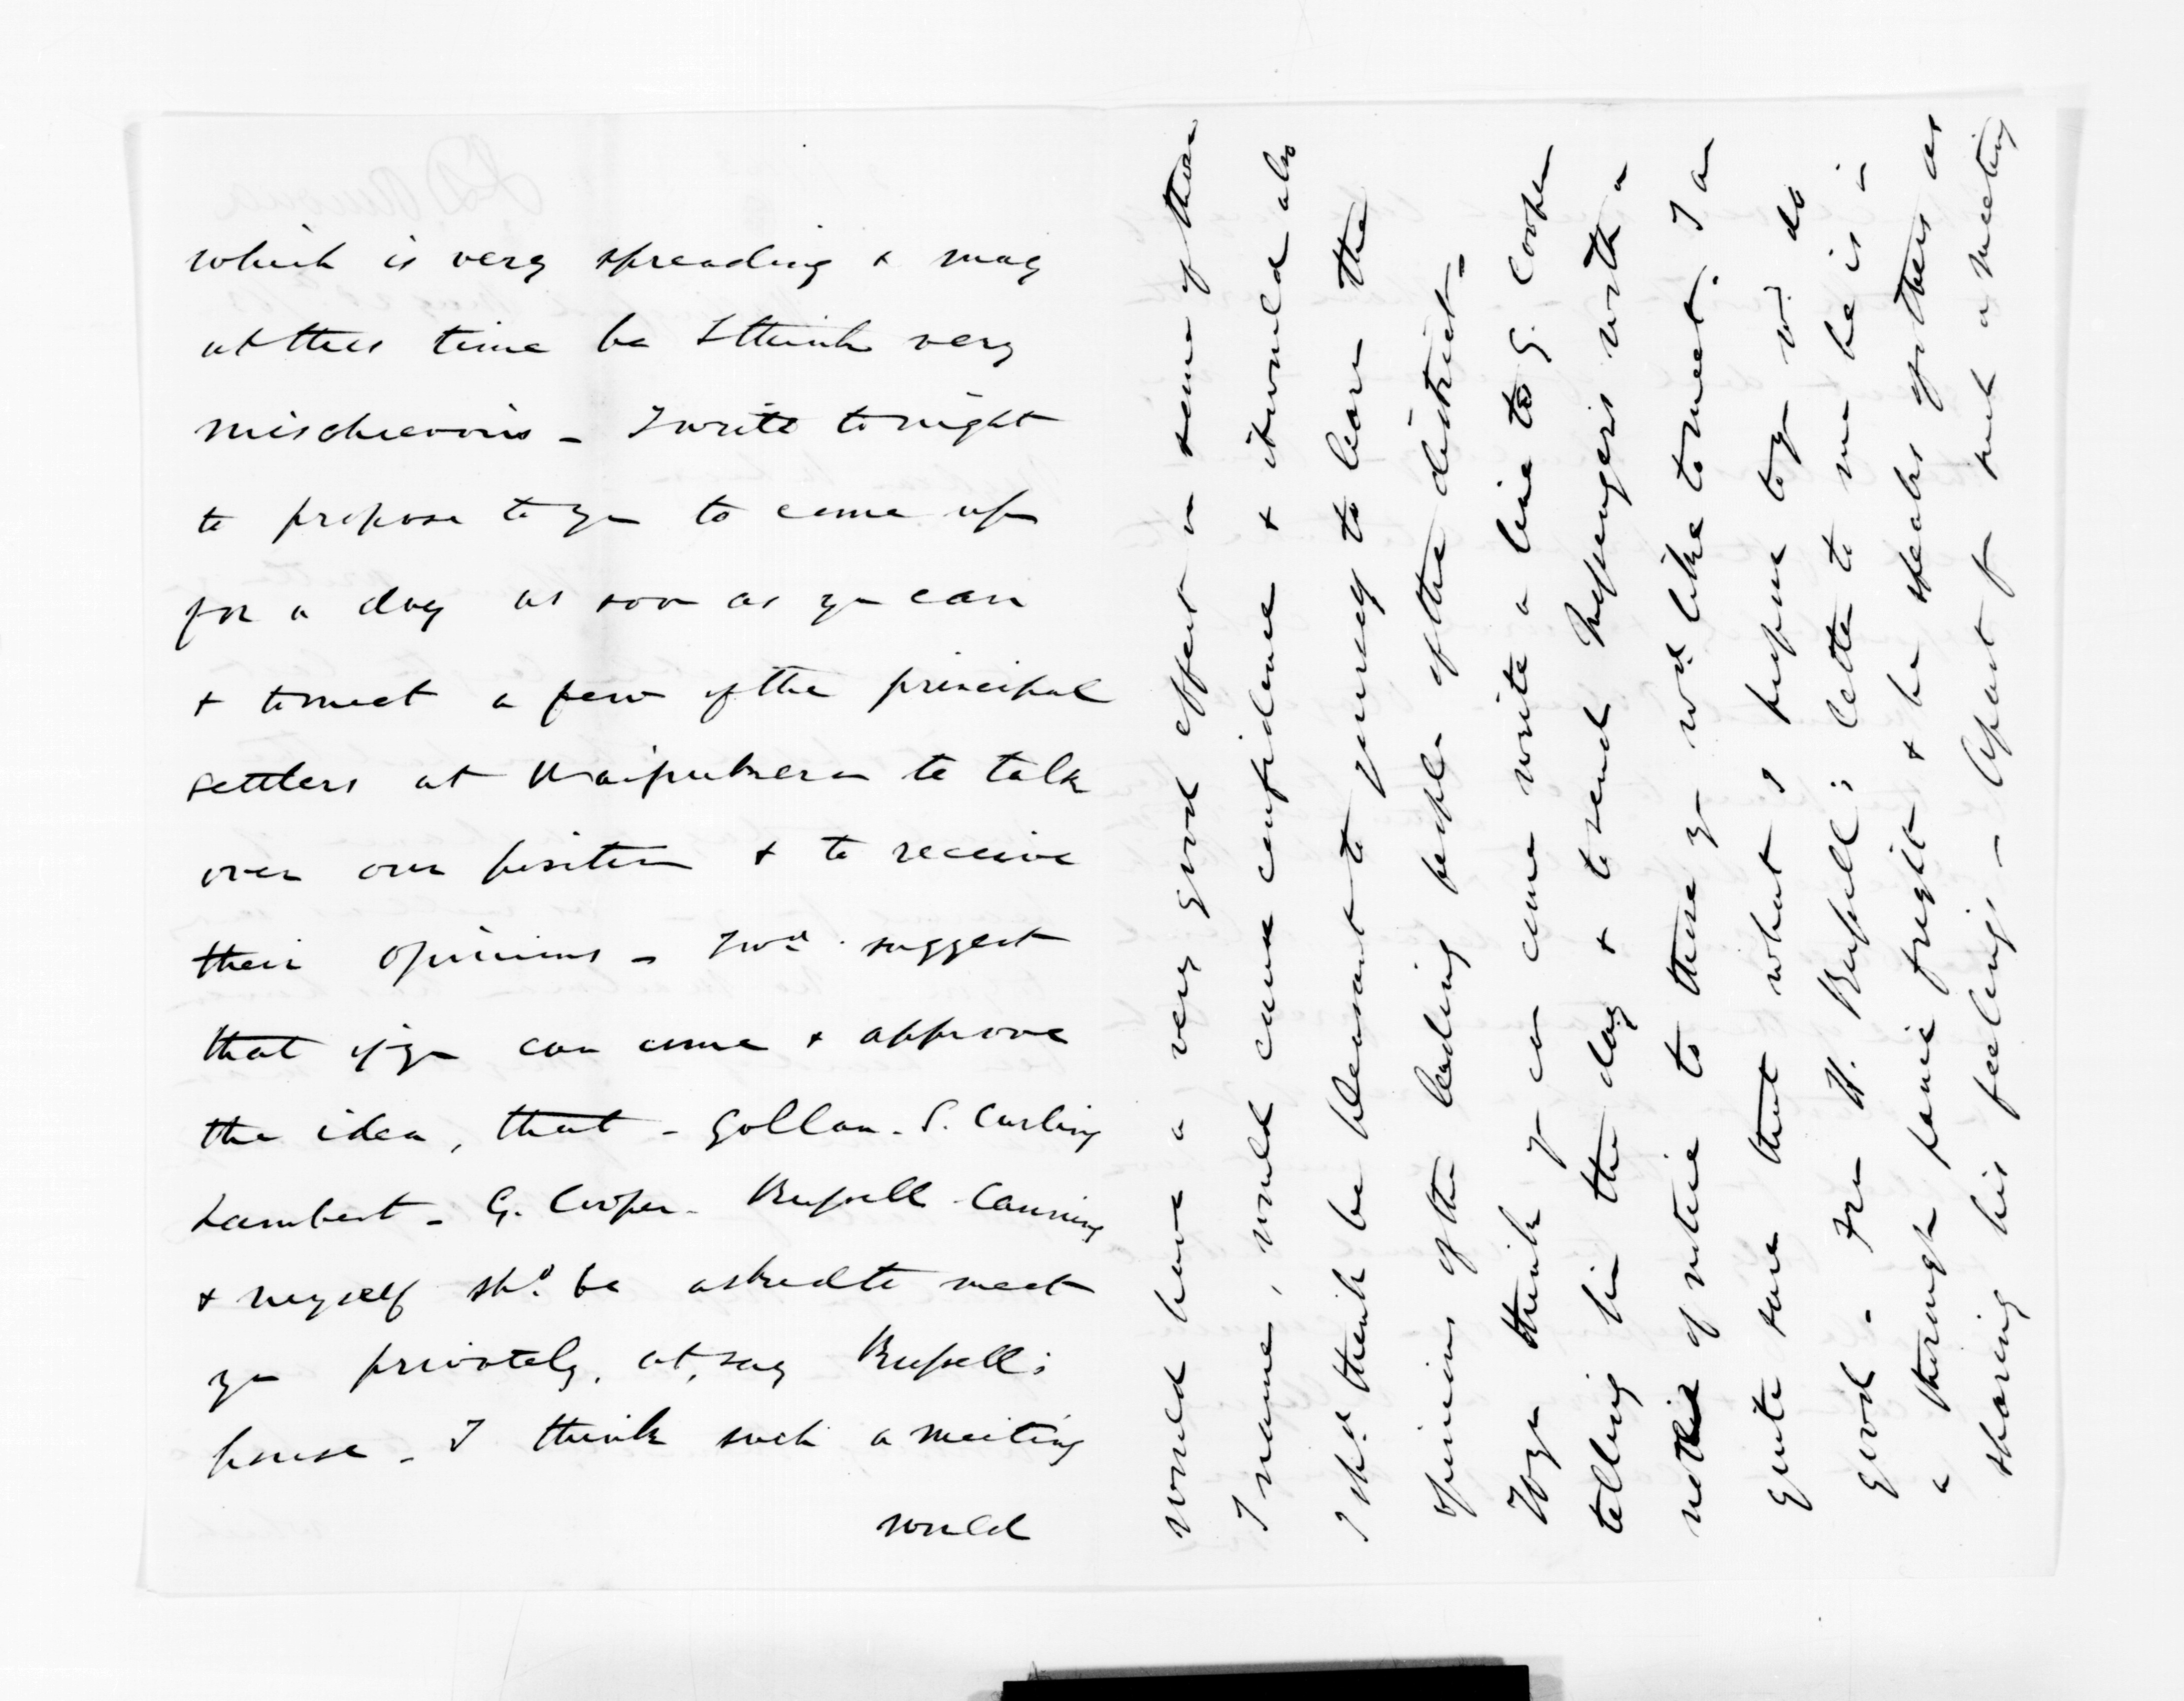 which is very spreading & may
at this time be I think very
mischievous - I write tonight
to propose to yu to come up
for a day as soon as yu can
& to meet a few of the principal
settlers at Waipukurau to talk
over our position & to receive
their opinions - I wd. suggest
that if yu can come & approve
the idea, that - Gollan - S. Curling
Lambert - G. Cooper - Russell - Canning
& myself shd. be asked to meet
yu privately, at, say Russell's
house - I think such a meeting
would
would have a very good effect on some of those
I name, would cause confidence & it would also
I shd. think be pleasant to yourself to learn the
opinions of the leading people of the district -
If yu think yu can come write a line to G. Cooper
telling him the day & to send Messengers with a
notice to those yu wd. like to meet. I am
quite sure that what I propose to yu wd. do
good - From H. Russell's letter to me he is in
a thorough panic fright & he speaks of others as
sharing his feelings - Apart from such a meeting